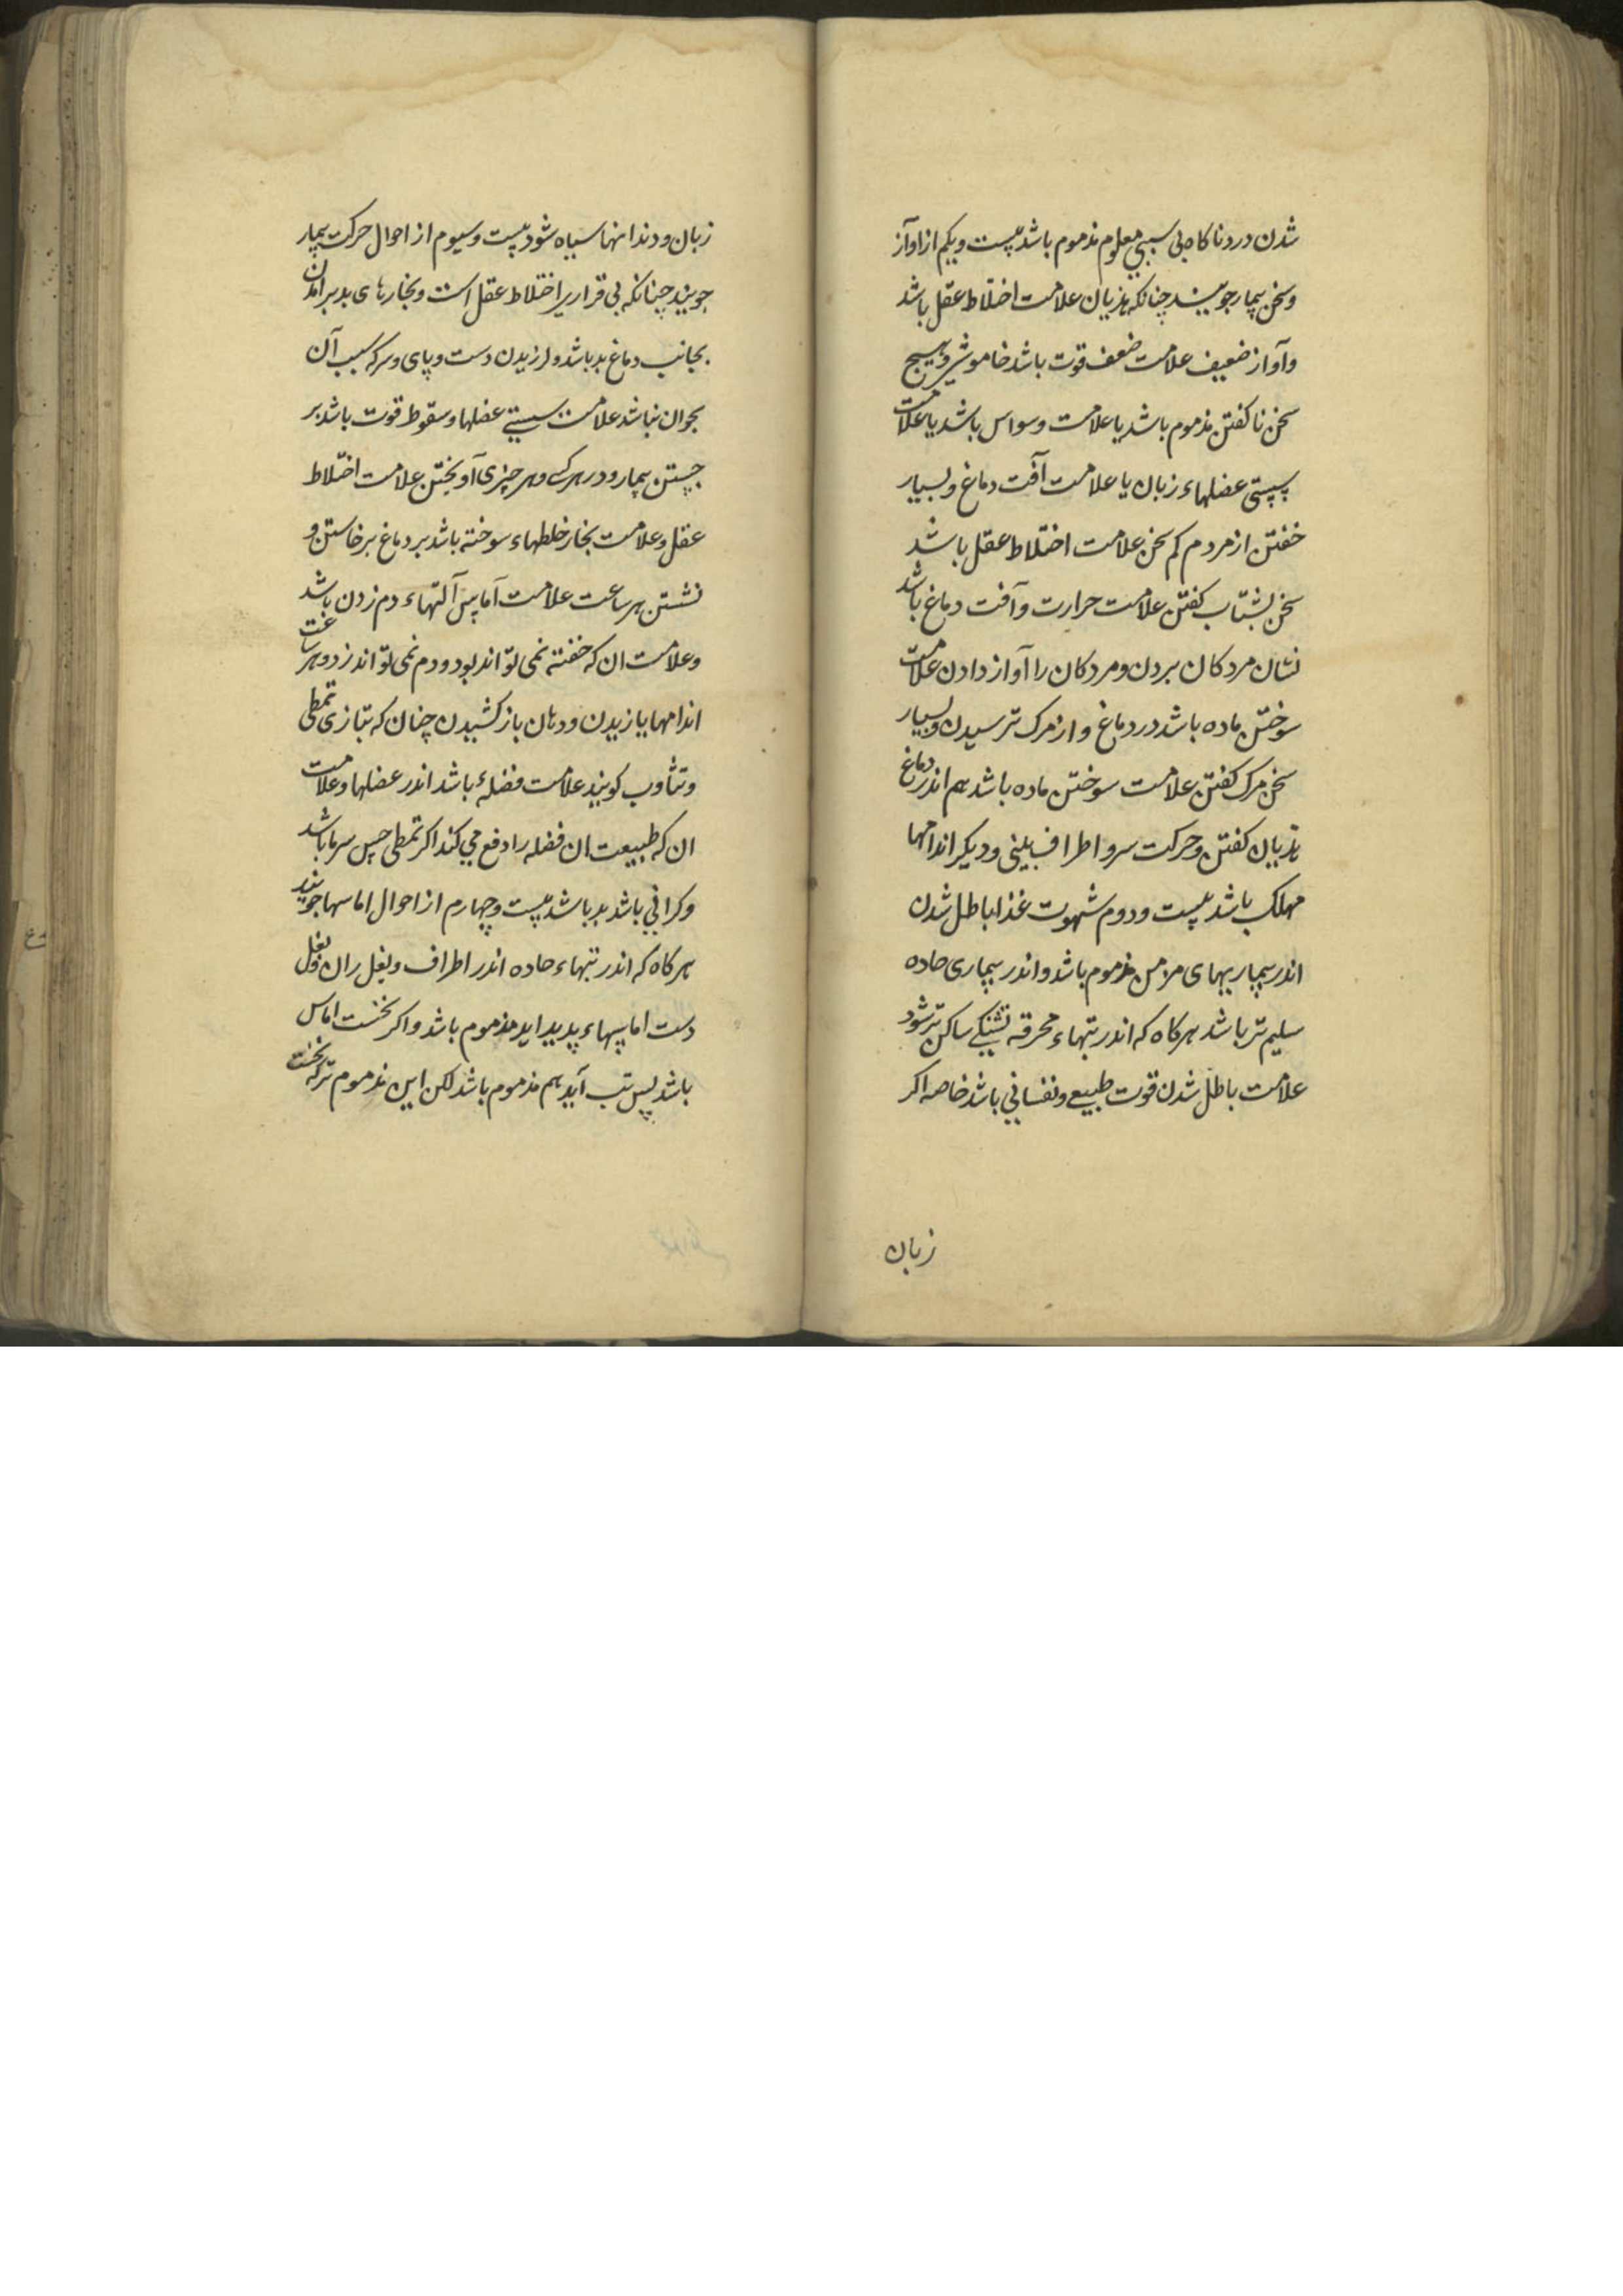 شدن درد ناکاه بی سببی معلوم مذموم باشد بیست و یکم از اواز
و سخن بیمار جویند چنانکه هذیان علامت اختلاط عقل باشد
و آواز ضعیف علامت ضعف قوت باشد خاموشی و هیچ
سخن ناکفتن مذموم باشد یا علامت وسواس باشد یا علامت
سستی عضلهاء زبان یا علامت آفت دماغ و بسیار
خفتن از مردم کم سخن علامت اختلاط عقل باشد
سخن بشتاب کفتن علامت حرارت و آفت دماغ باشد
نشان مردکان بردن و مردکان را آواز دادن علامت
سوختن ماده باشد در دماغ و از مرک ترسیدن و بسیار
سخن مرک کفتن علامت سوختن ماده باشد هم اندر دماغ
هذیان کفتن و حرکت سر و اطراف بینی و دیکر اندامها
مهلک باشد بیست و دوم شهوت غذا باطل شدن
اندر بیماریهای مزمن مذموم باشد و اندر بیماری حاده
سلیم تر باشد هرکاه که اندر تبهاء محرقه تشنکی ساکن تر شود
علامت باطل شدن قوت طبیعی و نفسانی باشد خاصه اکر
زبان
زبان و دندانها سیاه شود بیست و سیوم از احوال حرکت بیمار
جویند چنانکه بی قراری را اختلاط عقل است و بخارهای بد برامدن
بجانب دماغ بد باشد و لرزیدن دست و پای و سر که سبب آن
بحران نباشد علامت سستی عضلها و سقوط قوت باشد بر
جستن بیمار و در هر کسی و هر چیزی آویختن علامت اختلاط
عقل و علامت بخار خلطهاء سوخته باشد بر دماغ برخاستن و
نشستن هر ساعت علامت آماس آلتهاء دم زدن باشد
و علامت ان که خفته نمی تواند بود و دم نمی تواند زد و هر ساعت
اندامها یازیدن و دهان باز کشیدن چنان که بتازی تمطی
و تثاوب کویند علامت فضلهٔ باشد اندر عضلها و علامت
ان که طبیعت ان فضله را دفع می کند اکر تمطی حس سرما باشد
و کرانی باشد بد باشد بیست و چهارم از احوال اماسها جویند
هرکاه که اندر تبهاء حاده اندر اطراف و بغل ران و بغل
دست اماسهاء پدید اید مذموم باشد و اکر نخست اماس
باشد پس تب آید هم مذموم باشد لکن این مذموم تر که نخست